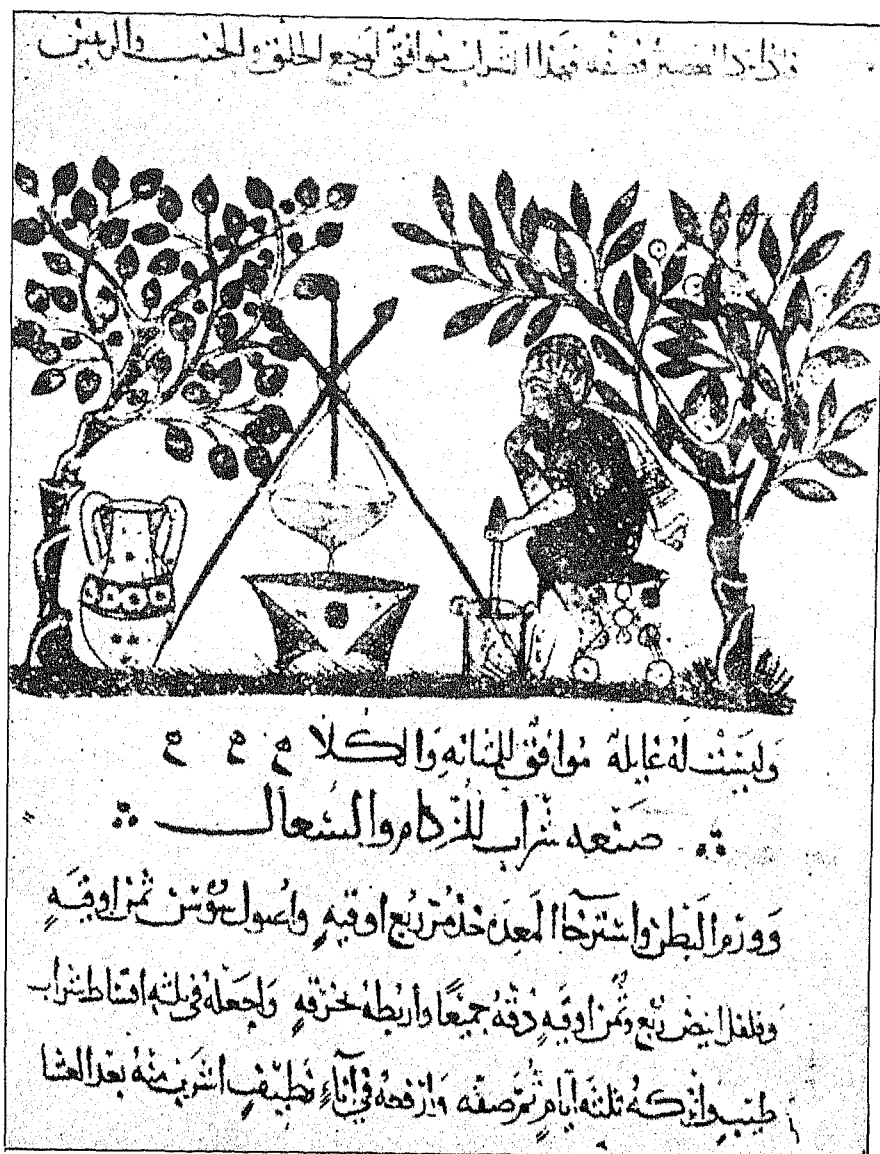 فصفه فهذا الشراب موافق لوجع الحلق والجنب والرئتين
وليست له غايلة موافق للمثانه والكلا ح ح ح
صنعه شراب للزكام والسعال
وورم البطن واسترخاا المعده خذ مر ربع اوقيه واصول سوسن ثمن اوقيه
وفلفل ابيض ربع وثمن اوقيه دقه جميعا واربطه بخرقه واجعله في ثلثه اقساط شراب
طيب واتركه ثلثه ايام ثم صفه وارفعه في اناء نظيف اشرب منه بعد العشا